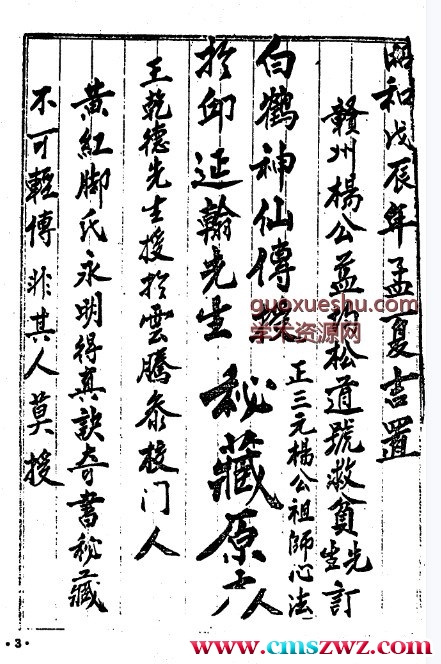 昭和戊辰年孟夏吉置
贛州楊公益松道號救貧先生訂
白鶴神仙傳
正三元楊公祖師心法
於邱延翰先生 秘藏原人
王乾德先生授於雲騰叅校门人
黃紅脚氏永明得真訣奇書秘藏
不可輕傳非其人莫授
guoxueshu.com
学术资源网
·3·
www.cmszwz.com